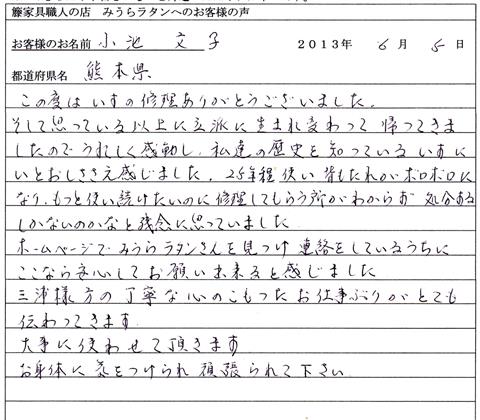 籐家具職人の店　みうらラタンへのお客様の声
お客様のお名前 小池 文子 2013年 6月 5日
都道府県名 熊本県
この度は いすの修理ありがとうございました。
そして思っている以上に立派に生まれ変わって 帰ってきま
したのでうれしく感動し、私達の歴史を知っている いすに
いとおしささえ感じました。25年程使い 背もたれがボロボロに
なり、もっと使い続けたいのに修理してもらう所がわからず 処分する
しかないのかなと残念に思っていました
ホームページでみうらラタンさんを見つけ 連絡をしているうちに
ここなら安心してお願い出来ると感じました
三浦様方の丁寧な心のこもったお仕事ぶりがとても
伝わってきます
大事に使わせて頂きます
お身体に気をつけられ 頑張られて下さい